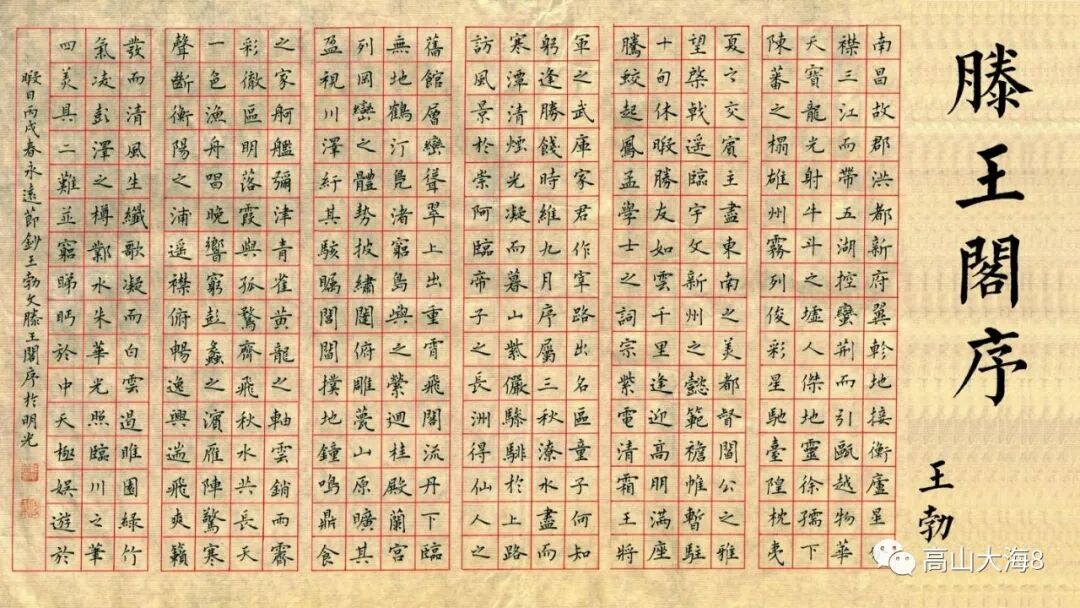 滕王閣序
王勃
南昌故郡洪都新府翼軫地接衡廬星
襟三江而帶五湖控蠻荊而引甌越物華
天寶龍光射牛斗之墟人傑地靈徐孺下
陳蕃之榻雄州霧列俊彩星馳臺隍枕夷
夏之交賓主盡東南之美都督閻公之雅
望棨戟遙臨宇文新州之懿範襜帷暫駐
十旬休暇勝友如雲千里逢迎高明滿座
騰蛟起鳳孟學士之詞宗紫電清霜王將
軍之武庫家君作宰路出名區童子何知
躬逢勝餞時維九月序屬三秋潦水盡而
寒潭清煙光凝而暮山紫儼驂騑於上路
訪風景於崇阿臨帝子之長洲得仙人之
舊館層巒聳翠上出重霄飛閣流丹下臨
無地鶴汀鳧渚窮島嶼之縈迴桂殿蘭宮
列岡巒之體勢披繡闥俯雕甍山原曠其
盈視川澤紆其駭矚閭閻撲地鐘鳴鼎食
之家舸艦彌津青雀黃龍之軸雲銷而霽
彩徹區明落霞與孤鶩齊飛秋水共長天
一色漁舟唱晚響窮彭蠡之濱雁陣驚寒
聲斷衡陽之浦遙襟俯暢逸興遄飛爽籟
發而清風生纖歌凝而白雲遏睢園綠竹
氣凌彭澤之樽鄴水朱華光照臨川之筆
四美具二難並窮睇眄於中天極娛遊於
暇日丙戌春永遠節鈔王勃文滕王閣序於明光
高山大海8